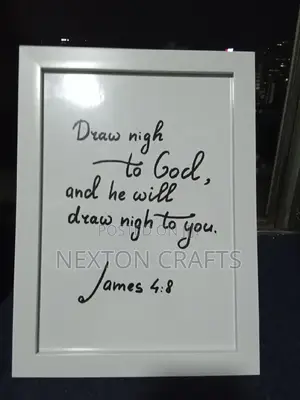 Draw nigh
to God,
and he will
draw nigh to you.
POSTED ON
NEXTON CRAFTS
James 4:8